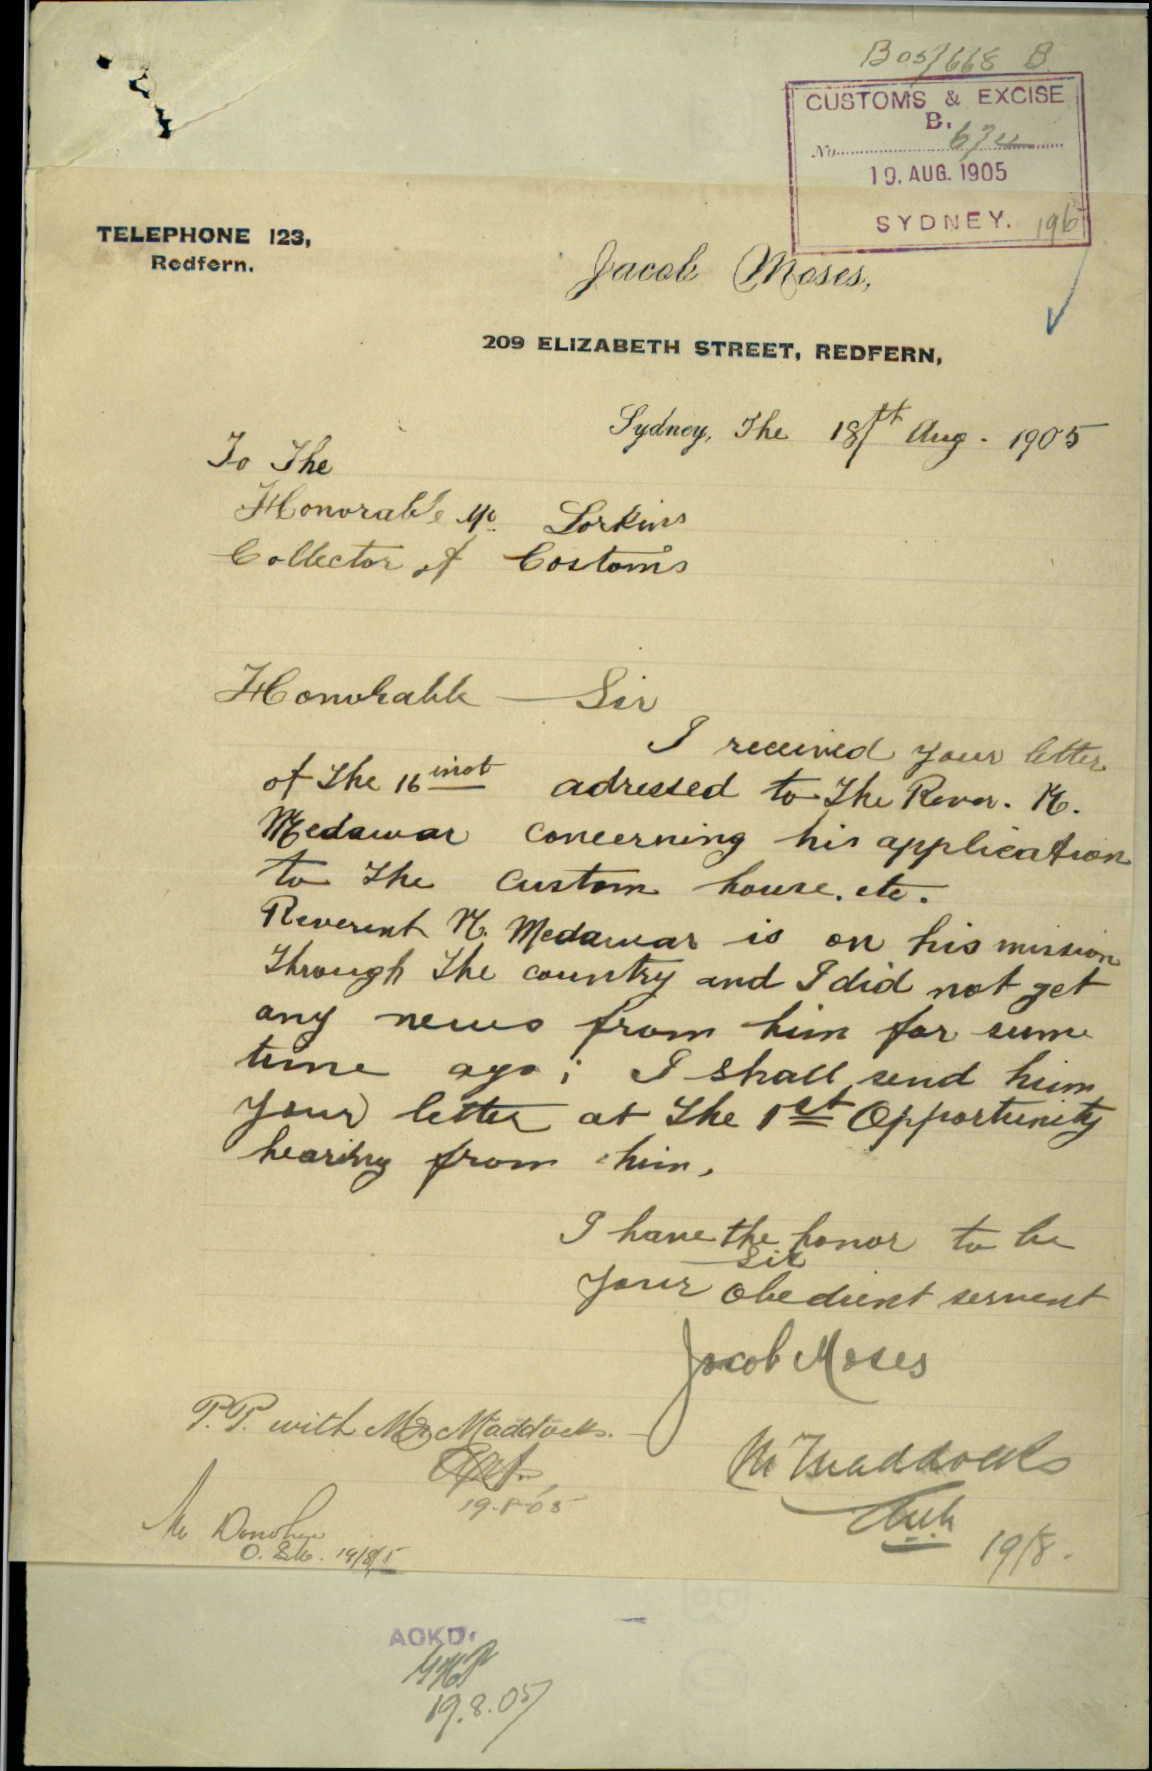 B 05/668 B
CUSTOMS & EXCISE
B.
No.
19. AUG. 1905
SYDNEY.
TELEPHONE 123,
Redfern.
Jacob Moses,
209 ELIZABETH STREET, REDFERN,
Sydney, The 18th Aug. 1905
To The
Honorable Mr. Lorkins
Collector of Costoms
Honorable Sir
I received your letter
of The 16 inst adressed to The Rever. M.
Medawar concerning his application
to The Custom house. etc.
Reverent M. Medawar is on his mission
Through The country and I did not get
any news from him for sume
time ago; I shall send him
your letter at The 1st Opportunity
hearing from him.
I have the honor to be
Sir
your obedient servent
Jacob Moses
P.P. with Mr Maddocks.
19.8.05
Mr Maddocks
19/8.
Mr Donohue
19/8/5
ACKD.
19.8.05